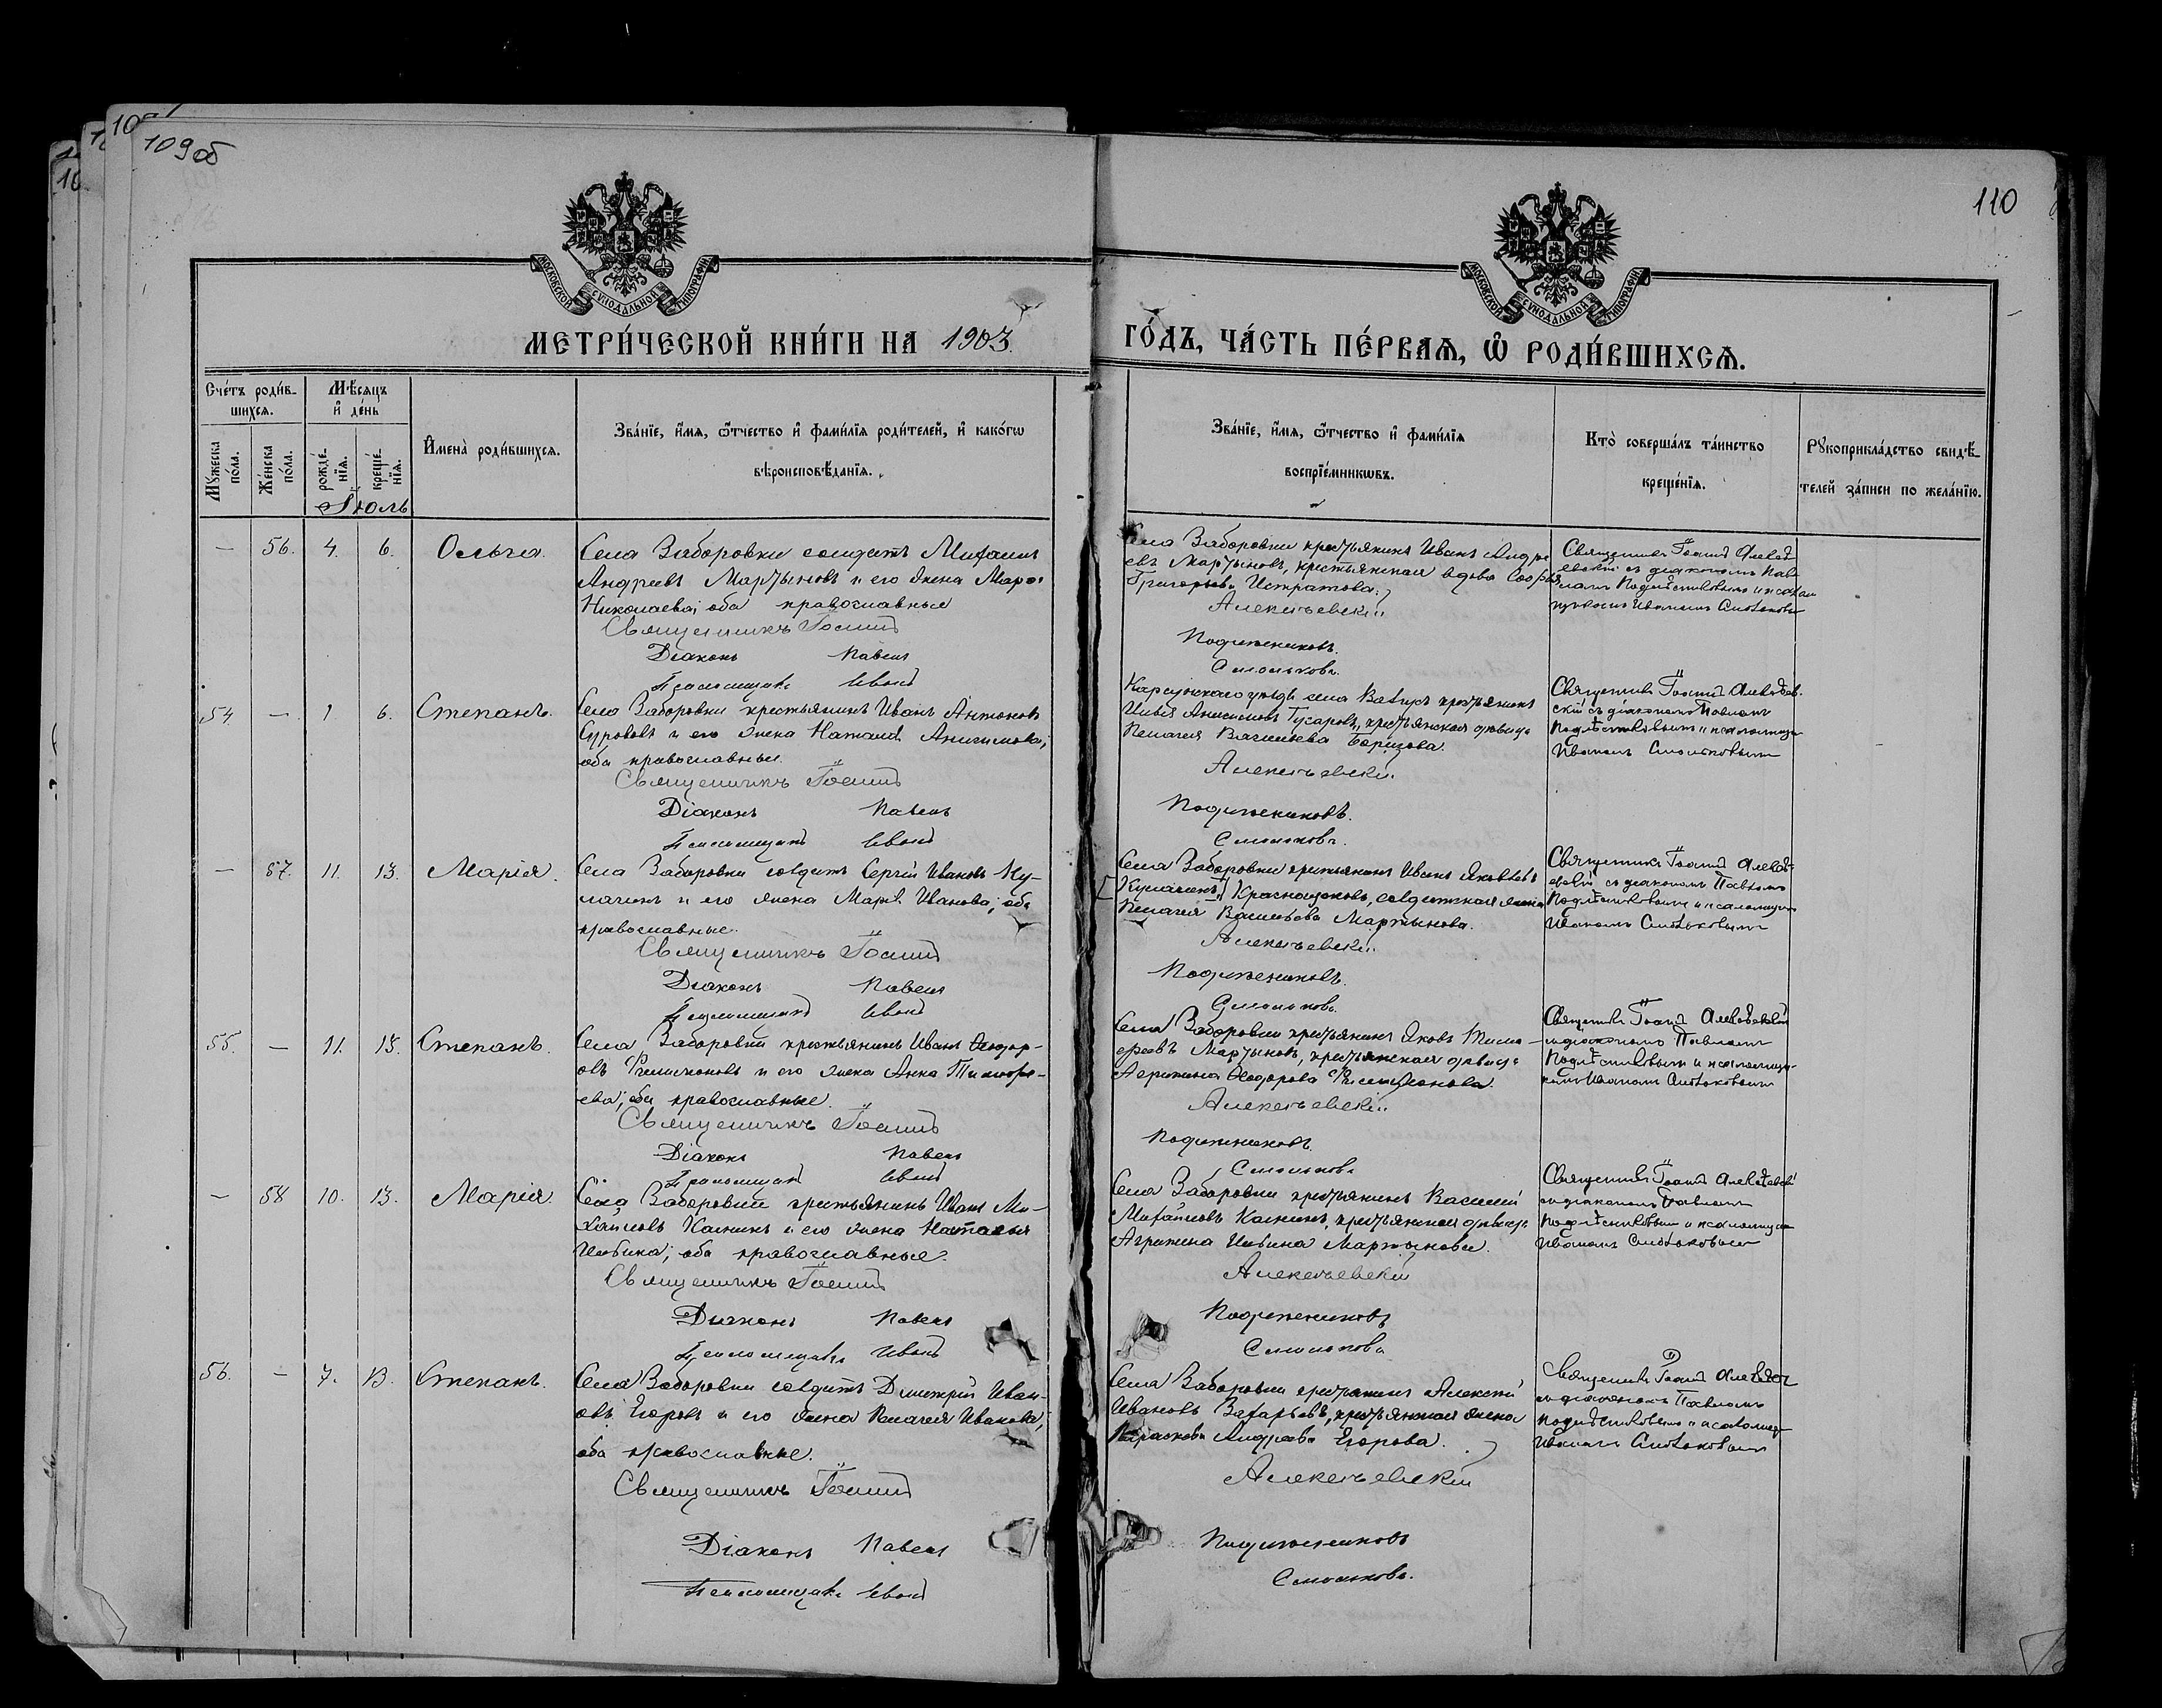 109об
110
МОСКОВСКОЙ СѴНОДАЛЬНОЙ ТИПОГРАФІИ
МОСКОВСКОЙ СѴНОДАЛЬНОЙ ТИПОГРАФІИ
МЕТРИ́ЧЕСКОЙ КНИ́ГИ НА 1903.
ГО́ДЪ, ЧА́СТЬ ПЕ́РВАЯ, Ѽ РОДИ́ВШИХСѦ.
Сче́тъ роди́в-
шихсѧ.
Мѣ́сѧцъ
и҆ де́нь
Мꙋ́жеска по́ла.
Же́нска по́ла.
рожде́-
нїѧ.
креще́-
нїѧ.
И҆мена̀ роди́вшихсѧ.
Зва́нїе, и҆́мѧ, ѻ҆́тчество и҆ фами́лїѧ роди́телей, и҆ како́гѡ
вѣроисповѣ́данїѧ.
Зва́нїе, и҆́мѧ, ѻ҆́тчество и҆ фами́лїѧ
воспрїе́мникѡвъ.
Кто̀ соверша́лъ та́инство
креще́нїѧ.
Рꙋкоприкла́дство свидѣ́-
телей за́писи по жела́нїю.
Іюль
— 56. 4. 6. Ольга.
Села Заборовки солдатъ Михаилъ
Андреевъ Мартыновъ и его жена Марѳа
Николаева; оба православные
Священникъ Іоаннъ
Діаконъ Павелъ
Псаломщикъ Иванъ
Села Заборовки крестьянинъ Иванъ Андре
евъ Мартыновъ, крестьянская вдова Софья
Григорьева
Алексѣевскій
Подлѣсниковъ.
Смольковъ.
Священникъ Іоаннъ Алексѣ
евскій съ діакономъ Пав
ломъ Подлѣсниковымъ и псалом
щикомъ Иваномъ Смольковым
54 — 1 6. Степанъ.
Села Заборовки крестьянинъ Иванъ Антоновъ
Суровъ и его жена Наталія
оба православные.
Священникъ Іоаннъ
Діаконъ Павелъ
Псаломщикъ Иванъ
Карсунскаго уѣзда села крестьянинъ
Гусаровъ, крестьянская дѣвица
Пелагея Васильева Борисова.
Алексѣевскій
Подлѣсниковъ.
Смольковъ.
Священникъ Іоаннъ Алексѣев-
скій съ діакономъ Павломъ
Подлѣсниковымъ и псаломщи-
Иваномъ Смольковымъ
— 57. 11. 13. Марія.
Села Заборовки солдатъ Сергій Ивановъ Ку-
лагинъ и его жена Марія Иванова; оба
православные.
Священникъ Іоаннъ
Діаконъ Павелъ
Псаломщикъ Иванъ
Села Заборовки крестьянинъ Иванъ Яковлевъ
[Кулагинъ] Краснощековъ, солдатская жена
Пелагея Васильева Мартынова.
Алексѣевскій
Подлѣсниковъ.
Смольковъ.
Священникъ Іоаннъ Алексѣ-
евскій съ діакономъ Павломъ
Подлѣсниковымъ и псаломщик
Иваномъ Смольковымъ
55. — 11. 13. Степанъ.
Села Заборовки крестьянинъ Иванъ Ѳедор-
овъ Филимоновъ и его жена Анна Тимоѳе-
ева; оба православные.
Священникъ Іоаннъ
Діаконъ Павелъ
Псаломщикъ Иванъ
Села Заборовки крестьянинъ Яковъ Тимо-
ѳеевъ Мартыновъ, крестьянская дѣвица
Агрипина Ѳедорова Филимонова.
Алексѣевскій
Подлѣсниковъ.
Смольковъ
Священникъ Іоаннъ Алексѣевскій
съ діакономъ Павломъ
Подлѣсниковымъ и псаломщи-
комъ Иваномъ Смольковымъ
— 58 10. 13. Марія.
Села Заборовки крестьянинъ Иванъ Ми-
хайловъ Калнинъ и его жена Наталья
Ивлева; оба православные.
Священникъ Іоаннъ
Діаконъ Павелъ
Псаломщикъ Иванъ
Села Заборовки крестьянинъ Василій
Михайловъ Калнинъ, крестьянская дѣвица
Агрипина Мартынова.
Алексѣевскій
Подлѣсниковъ
Смольковъ
Священникъ Іоаннъ Алексѣевскій
съ діакономъ Павломъ
Подлѣсниковымъ и псаломщи
Иваномъ Смольковымъ
56. — 7. 13. Степанъ.
Села Заборовки солдатъ Димитрій Иван-
овъ Егоровъ и его жена Пелагея Иванова;
оба православные.
Священникъ Іоаннъ
Діаконъ Павелъ
Псаломщикъ Иванъ
Села Заборовки крестьянинъ Алексѣй
Ивановъ Захарьевъ, крестьянская жена
Параскева Андреева Егорова.
Алексѣевскій
Подлѣсниковъ
Смольковъ.
Священникъ Іоаннъ
съ діакономъ Павломъ
Подлѣсниковымъ и псаломщ
Иваномъ Смольковымъ